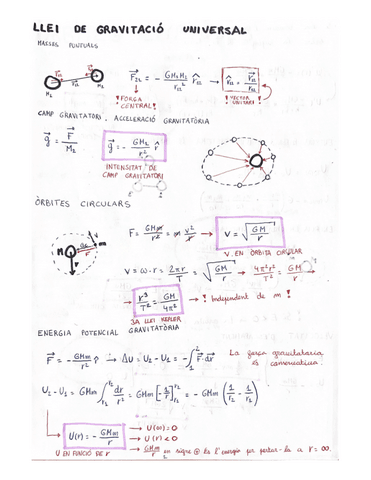 LLEI DE GRAVITACIÓ UNIVERSAL
MASSES PUNTUALS
F₂₁ = - GM₁M₂/r₁₂² r̂₁₂ → r̂₁₂ = r₁₂/r₁₂
M₁ M₂
! FORÇA CENTRAL ! ! VECTOR UNITARI !
CAMP GRAVITATORI. ACCELERACIÓ GRAVITATÒRIA
g = F/M₂ g = - GM₁/r² r̂
INTENSITAT DE
CAMP GRAVITATORI
ÒRBITES CIRCULARS
F = GMm/r² = m v²/r → v = √(GM/r)
V. EN ÒRBITA CIRCULAR
v = ω·r = 2πr/T = √(GM/r) → 4π²r²/T² = GM/r →
→ r³/T² = GM/4π² → ! Independent de m !
3A LLEI KEPLER
ENERGIA POTENCIAL GRAVITATÒRIA
F = - GMm/r² r̂ → ΔU = U₂ - U₁ = - ∫₁² F·dr La força gravitatoria
és conservativa.
U₂ - U₁ = GMm ∫ dr/r² = GMm [-1/r] = - GMm (1/r₂ - 1/r₁)
U(r) = - GMm/r → U(∞) = 0
→ U(r) < 0
U EN FUNCIÓ DE r → GMm/r en signe ⊕ és l'energia per portar-la a r = ∞.